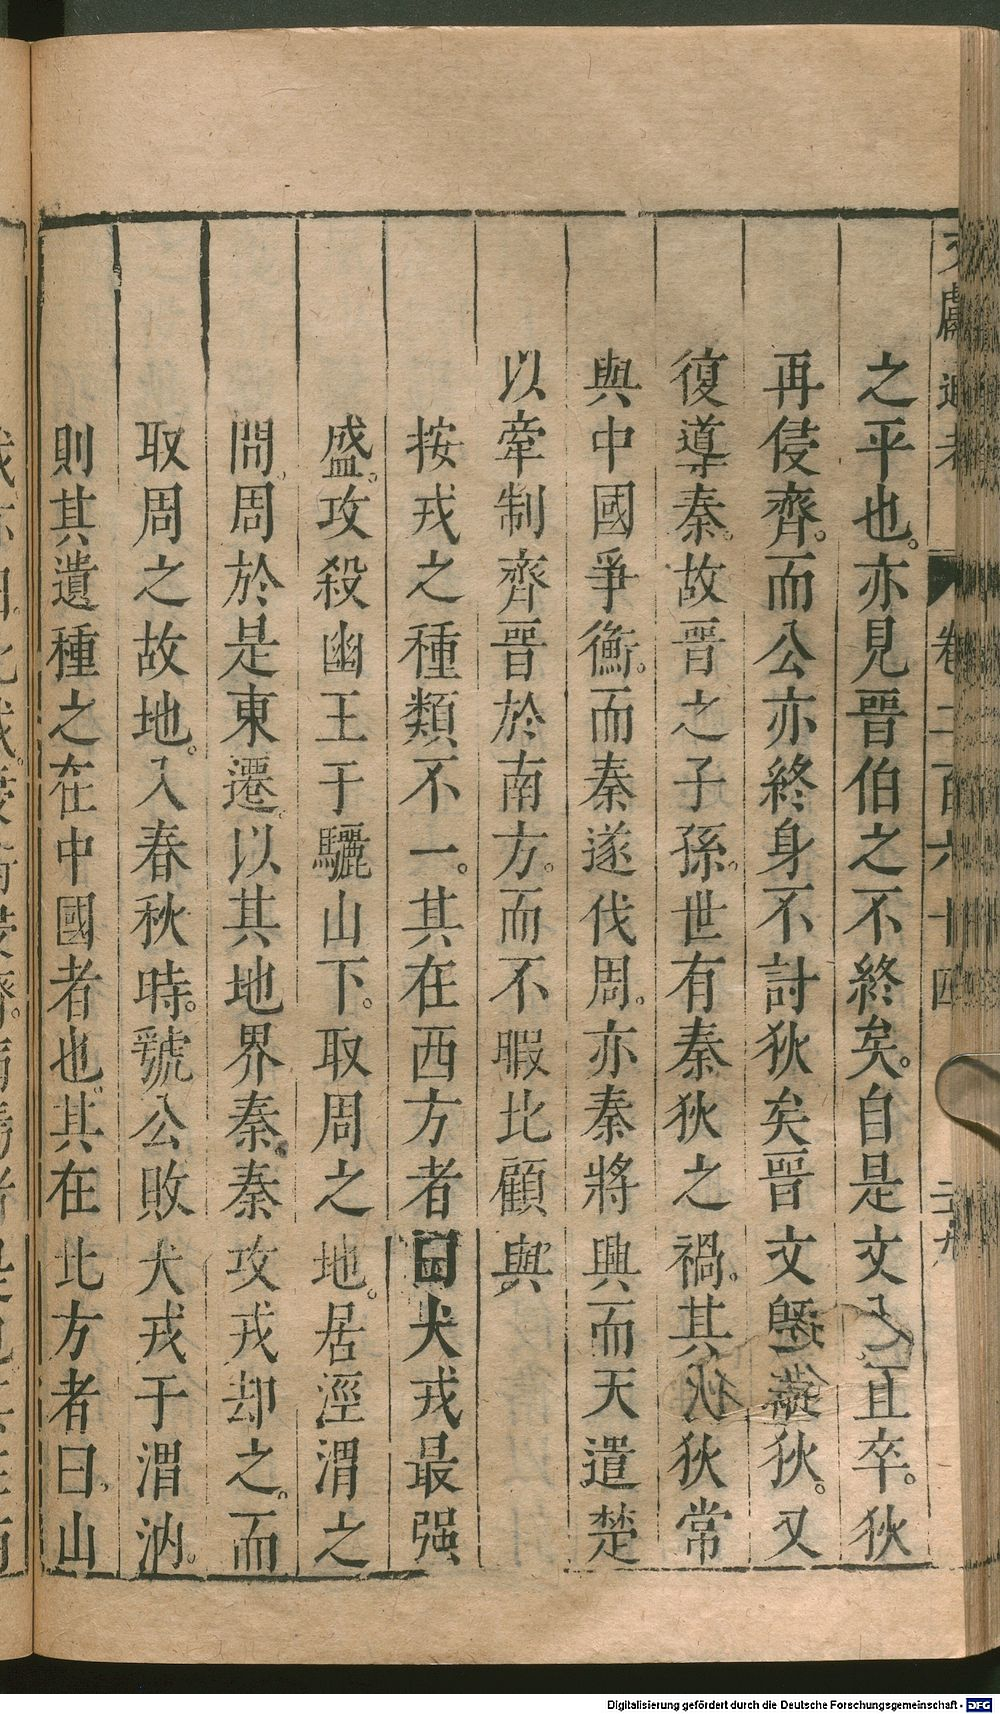 之平也。亦見晉伯之不終矣。自是文公且卒。狄
再侵齊。而公亦終身不討狄矣晉文旣縱狄。又
復導秦。故晉之子孫。世有秦狄之禍。其後狄常
與中國爭衡。而秦遂伐周。亦秦將興而天遣楚
以牽制齊晉於南方。而不暇比顧與。
按戎之種類不一。其在西方者曰犬戎最强
盛。攻殺幽王于驪山下。取周之地。居涇渭之
間。周於是東遷。以其地界秦。秦攻戎却之。而
取周之故地。入春秋時。虢公敗犬戎于渭汭。
則其遺種之在中國者也。其在北方者曰。山
卷二百六十四
Digitalisierung gefördert durch die Deutsche Forschungsgemeinschaft - DFG